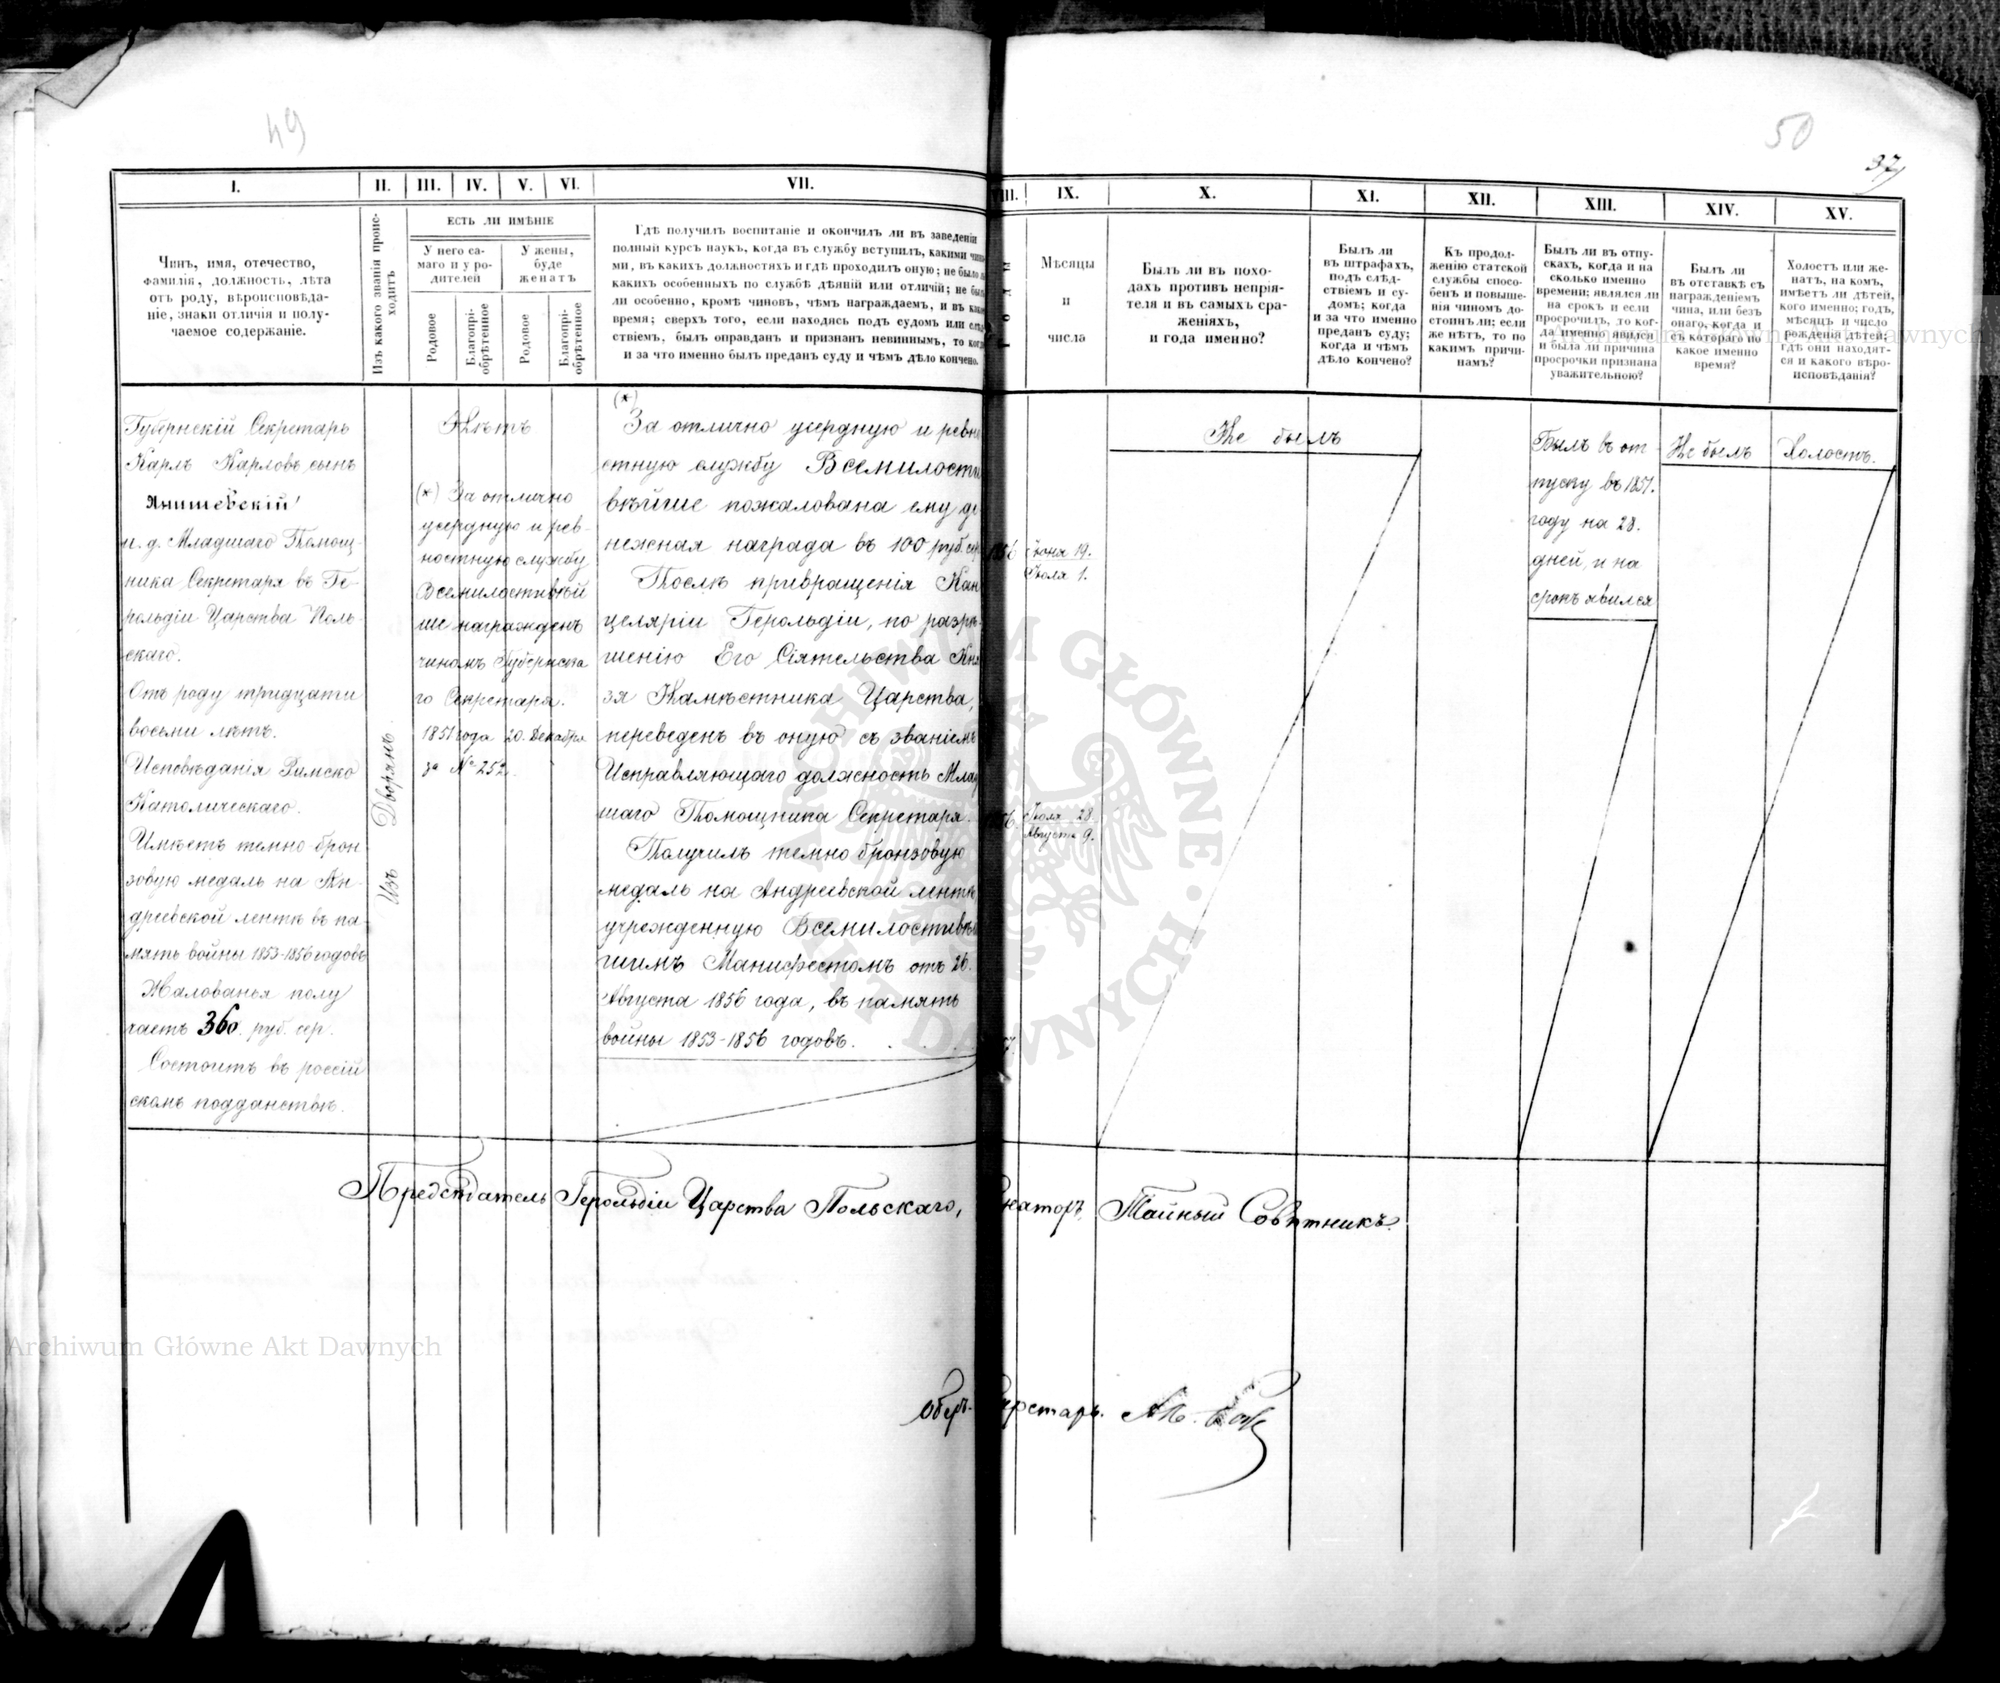 49
50
37
I.
II.
III.
IV.
V.
VI.
VII.
VIII.
IX.
X.
XI.
XII.
XIII.
XIV.
XV.
Чинъ, имя, отечество,
фамилія, должность, лѣта
отъ роду, вѣроисповѣда-
ніе, знаки отличія и полу-
чаемое содержаніе.
Изъ какого званія проис-
ходитъ
ЕСТЬ ЛИ ИМѢНІЕ
У него са-
маго и у ро-
дителей
У жены,
буде
женатъ
Родовое
Благопрі-
обрѣтенное
Родовое
Благопрі-
обрѣтенное
Гдѣ получилъ воспитаніе и окончилъ ли въ заведеніи
полный курсъ наукъ, когда въ службу вступилъ, какими чина-
ми, въ какихъ должностяхъ и гдѣ проходилъ оную; не было ли
какихъ особенныхъ по службѣ дѣяній или отличій; не былъ
ли особенно, кромѣ чиновъ, чѣмъ награждаемъ, и въ какое
время; сверхъ того, если находясь подъ судомъ или слѣд-
ствіемъ, былъ оправданъ и признанъ невиннымъ, то когда
и за что именно былъ преданъ суду и чѣмъ дѣло кончено.
Мѣсяцы
и
числа
Былъ ли въ похо-
дахъ противъ непрія-
теля и въ самыхъ сра-
женіяхъ,
и года именно?
Былъ ли
въ штрафахъ,
подъ слѣд-
ствіемъ и су-
домъ; когда
и за что именно
преданъ суду;
когда и чѣмъ
дѣло кончено?
Къ продол-
женію статской
службы спосо-
бенъ и повыше-
нія чиномъ до-
стоинъ ли; если
же нѣтъ, то по
какимъ причи-
намъ?
Былъ ли въ отпу-
скахъ, когда и на
сколько именно
времени; являлся ли
на срокъ и если
просрочилъ, то ког-
да именно явился
и была ли причина
просрочки признана
уважительною?
Былъ ли
въ отставкѣ съ
награжденіемъ
чина, или безъ
онаго, когда и
съ котораго по
какое именно
время?
Холостъ или же-
натъ, на комъ,
имѣетъ ли дѣтей,
кого именно; годъ,
мѣсяцъ и число
рожденія дѣтей;
гдѣ они находят-
ся и какого вѣро-
исповѣданія?
Губернскій Секретарь
Карлъ Карловъ сынъ
Янишевскій
и. д. Младшаго Помощ-
ника Секретаря въ Ге-
рольдіи Царства Поль-
скаго.
Отъ роду тридцати
восьми лѣтъ.
Исповѣданія Римско
Католическаго.
Имѣетъ темно-брон
зовую медаль на Ан-
дреевской лентѣ въ па-
мять войны 1853-1856 годовъ
Жалованья полу
чаетъ 360. руб. сер.
Состоитъ въ россій
скомъ подданствѣ.
Изъ Дворянъ.
Нѣтъ
(*) За отлично
усердную и рев-
ностную службу
Всемилостивѣй
ше награжденъ
чиномъ Губернска
го Секретаря.
1851 года 20. Декабря
за № 252.
(*)
За отлично усердную и ревно
стную службу Всемилости
вѣйше пожалована ему де
нежная награда въ 100 руб. сер.
1856 Іюня 19.
Іюля 1.
Послѣ привращенія Кан
целяріи Герольдіи, по разрѣ
шенію Его Сіятельства Кня
зя Намѣстника Царства,
переведенъ въ оную съ званіемъ
Исправляющаго должность Млад
шаго Помощника Секретаря.
Іюля 28.
Августа 9.
Получилъ темно бронзовую
медаль на Андреевской лентѣ,
учрежденную Всемилостивѣй
шимъ Манифестомъ отъ 26.
Августа 1856 года, въ память
войны 1853-1856 годовъ.
Не былъ
Былъ въ от
пуску въ 1851.
году на 28.
дней, и на
срокъ явился
Не былъ
Холостъ.
Предсѣдатель Герольдіи Царства Польскаго, Сенаторъ, Тайный Совѣтникъ.
Оберъ-Секретарь.
Archiwum Główne Akt Dawnych
Archiwum Główne Akt Dawnych
ARCHIWUM GŁÓWNE AKT DAWNYCH